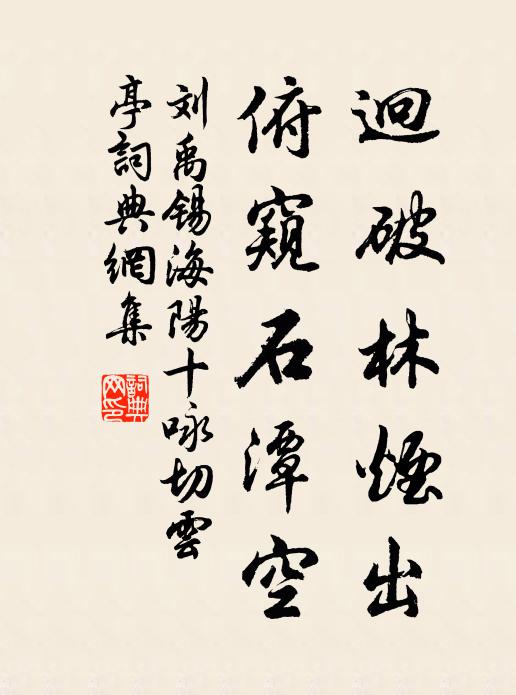 迥破林煙出
俯窺石潭空
刘禹锡海陽十咏切雲
亭詞典網集
詞典
网印